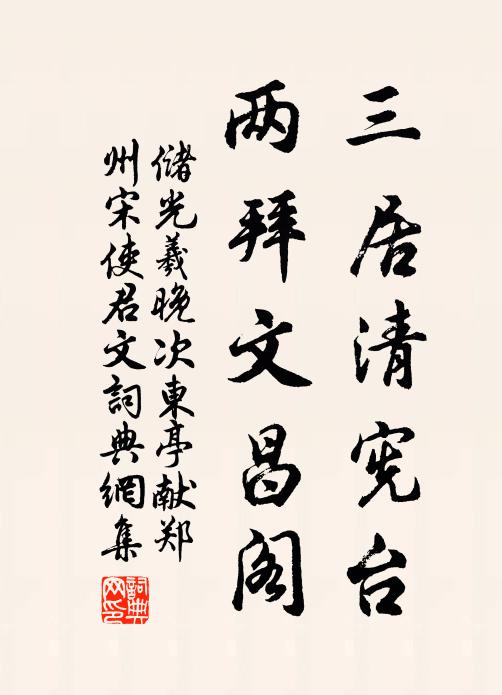 三居清宪台
两拜文昌阁
儲光羲晚次東亭献郑
州宋使君文詞典網集
詞典網印